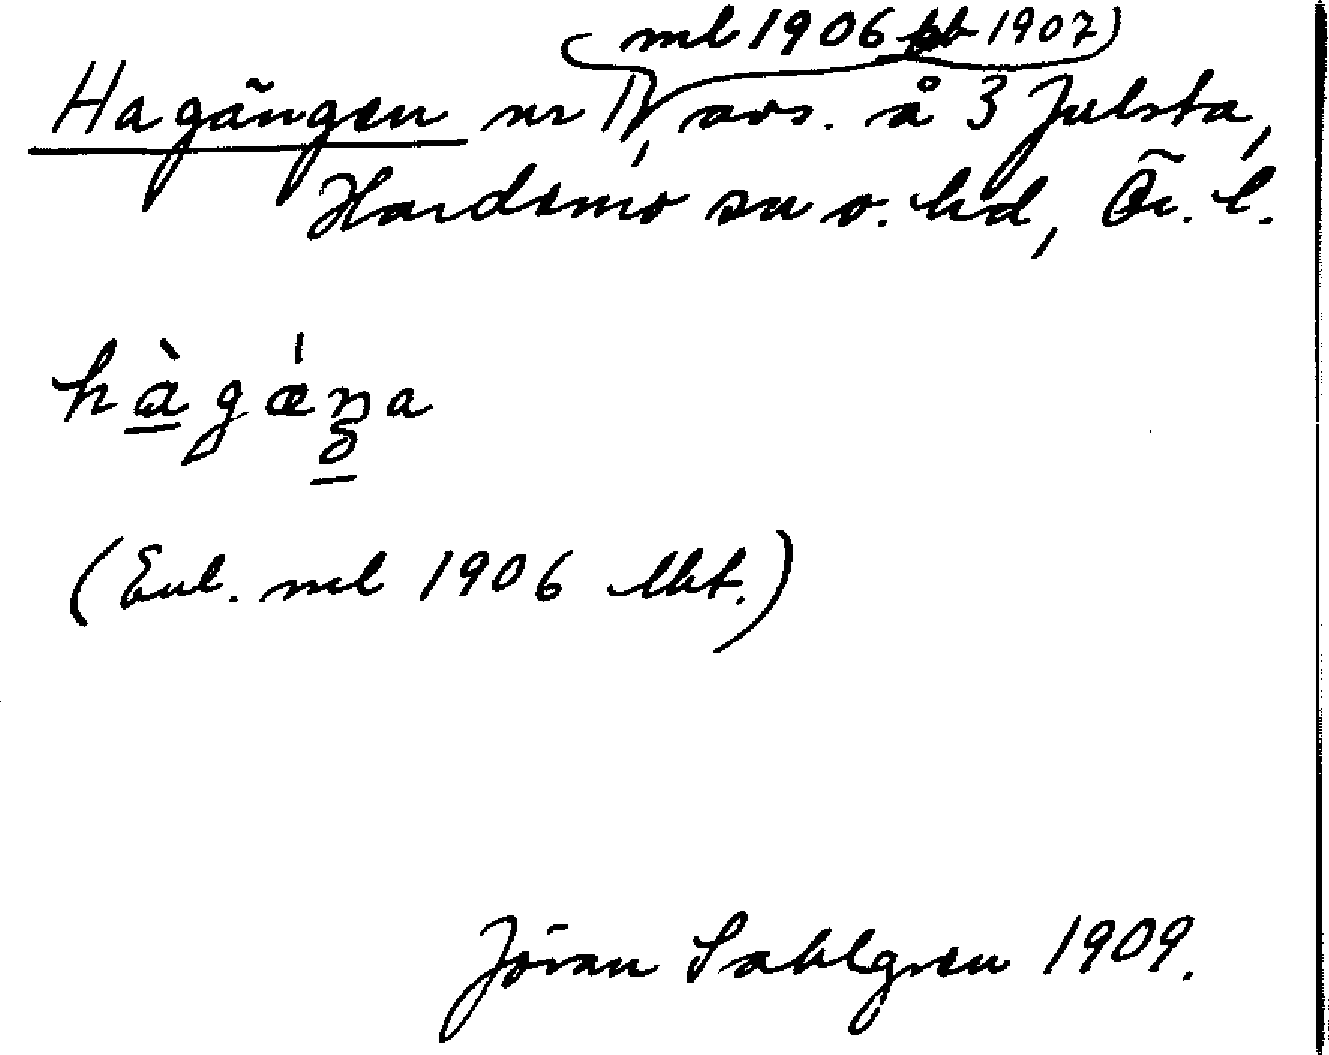 (ml 1906 kb 1907)
Hagängen nr IV, avs. å 3 Julsta,
Hardemo sn o. hd, Ör. l.
hàgæ̀ŋa
(Enl. ml 1906 lkt.)
Jöran Sahlgren 1909.